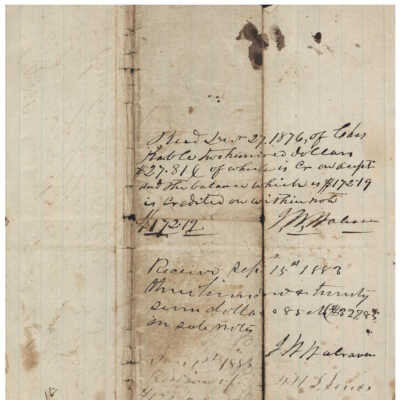 Recd Dec 27, 1876, of Chas
two hundred dollars
$27.81 ¢ of which is Cr on acct
and the balance which is $172.19
is credited on within note
$172.19 J W Walraven
Receive Sep 15th 1883
three hundred & twenty
seven dollars 85 $327.85
on sole note
J W Walraven
1883